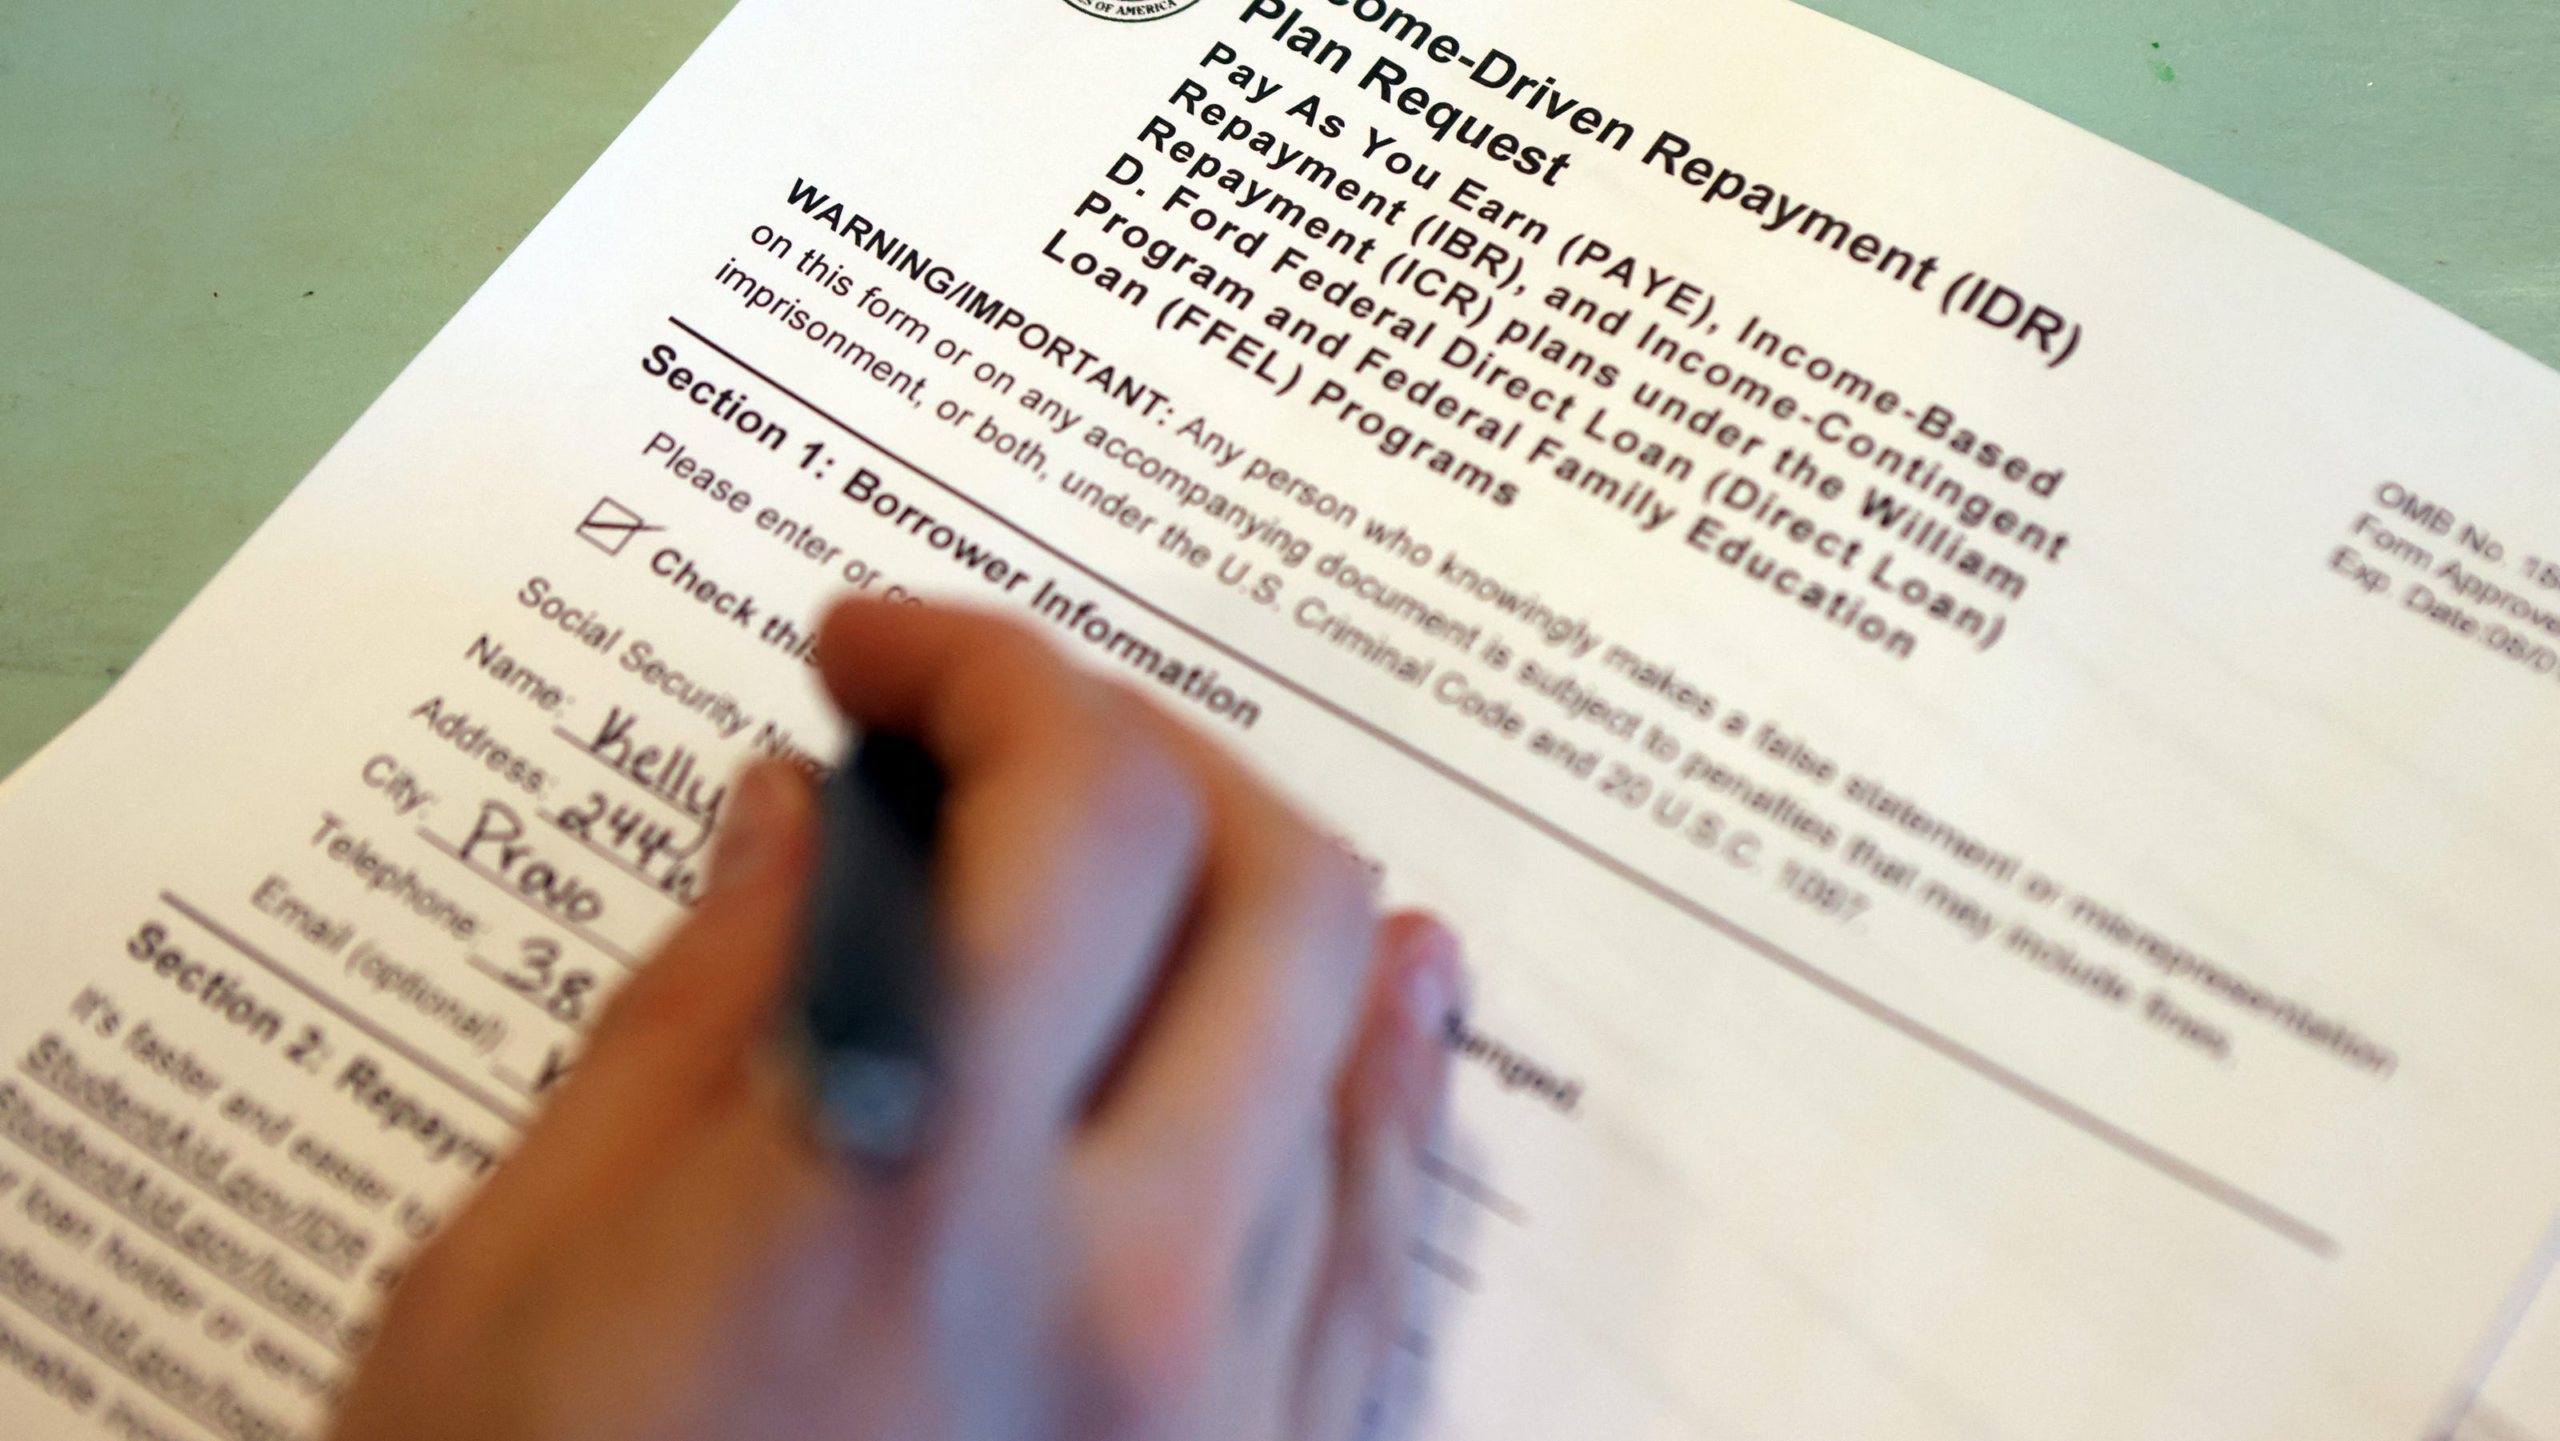 ES OF AMERICA
come-Driven Repayment (IDR)
Plan Request
Pay As You Earn (PAYE), Income-Based
Repayment (IBR), and Income-Contingent
Repayment (ICR) plans under the William
D. Ford Federal Direct Loan (Direct Loan)
Program and Federal Family Education
Loan (FFEL) Programs
OMB No. 18
Form Approve
Exp. Date:08/
WARNING/IMPORTANT: Any person who knowingly makes a false statement or misrepresentation
on this form or on any accompanying document is subject to penalties that may include fines,
imprisonment, or both, under the U.S. Criminal Code and 20 U.S.C. 1097.
Section 1: Borrower Information
Please enter or co
Check this
Social Security Num
Name: Kelly
Address: 244
City: Provo
Telephone: 38
Email (optional)
Section 2: Repaym
It's faster and easier to
StudentAid.gov/IDR
StudentAid.gov/loan
loan holder or serv